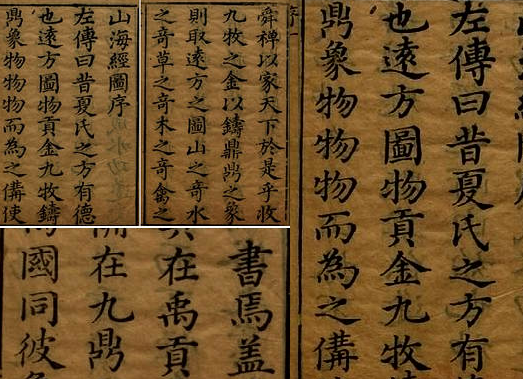 山海經圖序
左傳曰昔夏氏之方有德
也遠方圖物貢金九牧鑄
鼎象物物物而為之備使
舜禪以家天下於是乎收
九牧之金以鑄鼎鼎之象
則取遠方之圖山之奇水
之奇草之奇木之奇禽之
左傳曰昔夏氏之方有
也遠方圖物貢金九牧
鼎象物物物而為之備
書焉盖
在禹貢
在九鼎
國同彼